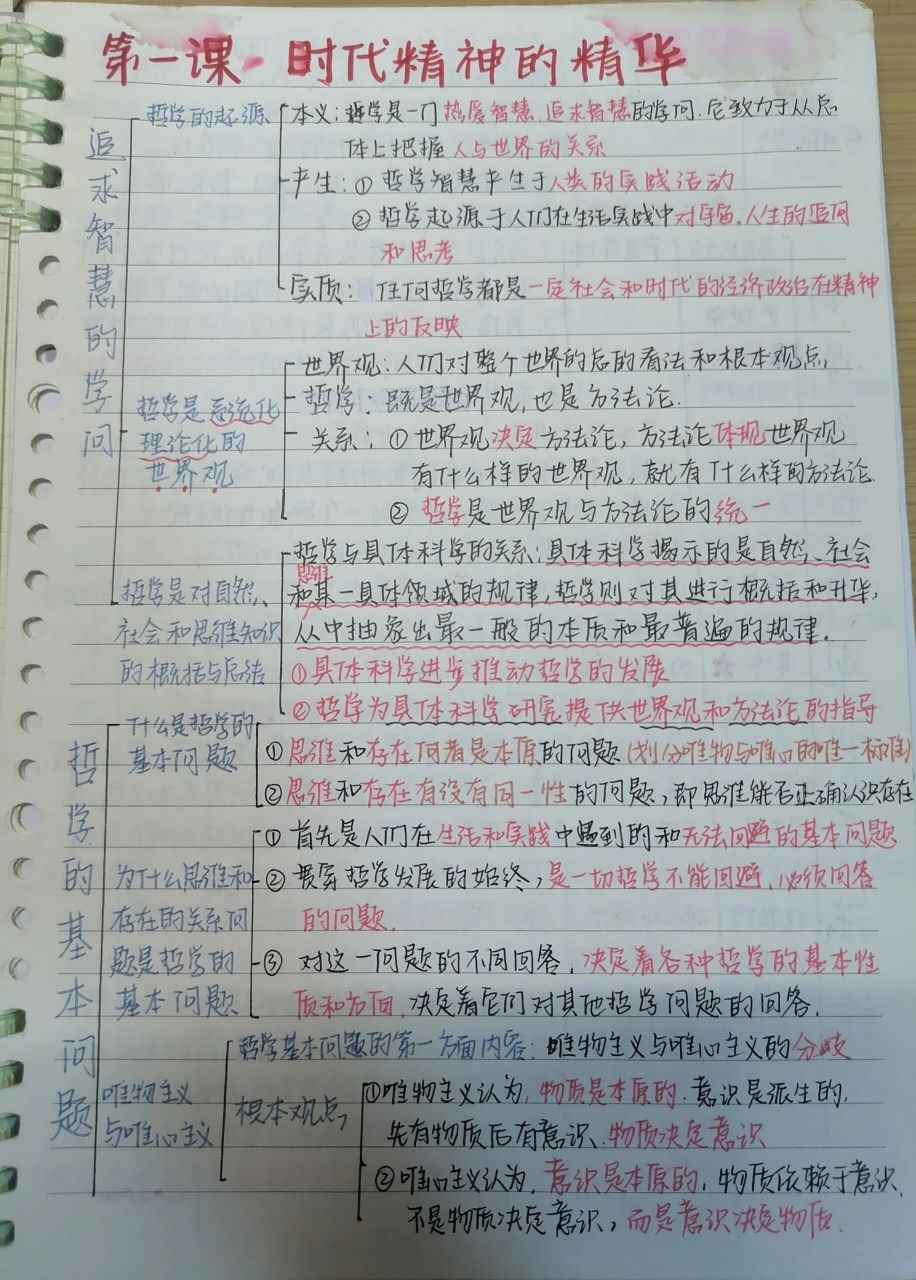 第一课 时代精神的精华
追求智慧的学问
哲学的起源
本义：哲学是一门热爱智慧、追求智慧的学问，它致力于从总
体上把握人与世界的关系
产生：①哲学智慧产生于人类的实践活动
②哲学起源于人们在生活实践中对宇宙、人生的追问
和思考
实质：任何哲学都是一定社会和时代的经济政治在精神
上的反映
哲学是系统化
理论化的
世界观
世界观：人们对整个世界的总的看法和根本观点，
哲学：既是世界观，也是方法论.
关系：①世界观决定方法论，方法论体现世界观
有什么样的世界观，就有什么样的方法论.
②哲学是世界观与方法论的统一
哲学是对自然、
社会和思维知识
的概括与总结
哲学与具体科学的关系：具体科学揭示的是自然、社会
思维
和某一具体领域的规律，哲学则对其进行概括和升华，
从中抽象出最一般的本质和最普遍的规律.
①具体科学进步推动哲学的发展
②哲学为具体科学研究提供世界观和方法论的指导
哲学的基本问题
什么是哲学的
基本问题
①思维和存在何者是本原的问题(划分唯物与唯心的唯一标准)
②思维和存在有没有同一性的问题，即思维能否正确认识存在
为什么思维和
存在的关系问
题是哲学的
基本问题
①首先是人们在生活和实践中遇到的和无法回避的基本问题
②贯穿哲学发展的始终，是一切哲学不能回避、必须回答
的问题.
③对这一问题的不同回答，决定着各种哲学的基本性
质和方面，决定着它们对其他哲学问题的回答.
唯物主义
与唯心主义
哲学基本问题的第一方面内容：唯物主义与唯心主义的分歧
根本观点，
①唯物主义认为，物质是本原的，意识是派生的，
先有物质后有意识、物质决定意识
②唯心主义认为，意识是本原的，物质依赖于意识，
不是物质决定意识，而是意识决定物质.